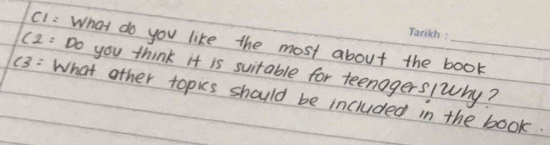 Tarikh :
C1: What do you like the most about the book
C2: Do you think it is suitable for teenagers/why?
C3: What other topics should be included in the book.